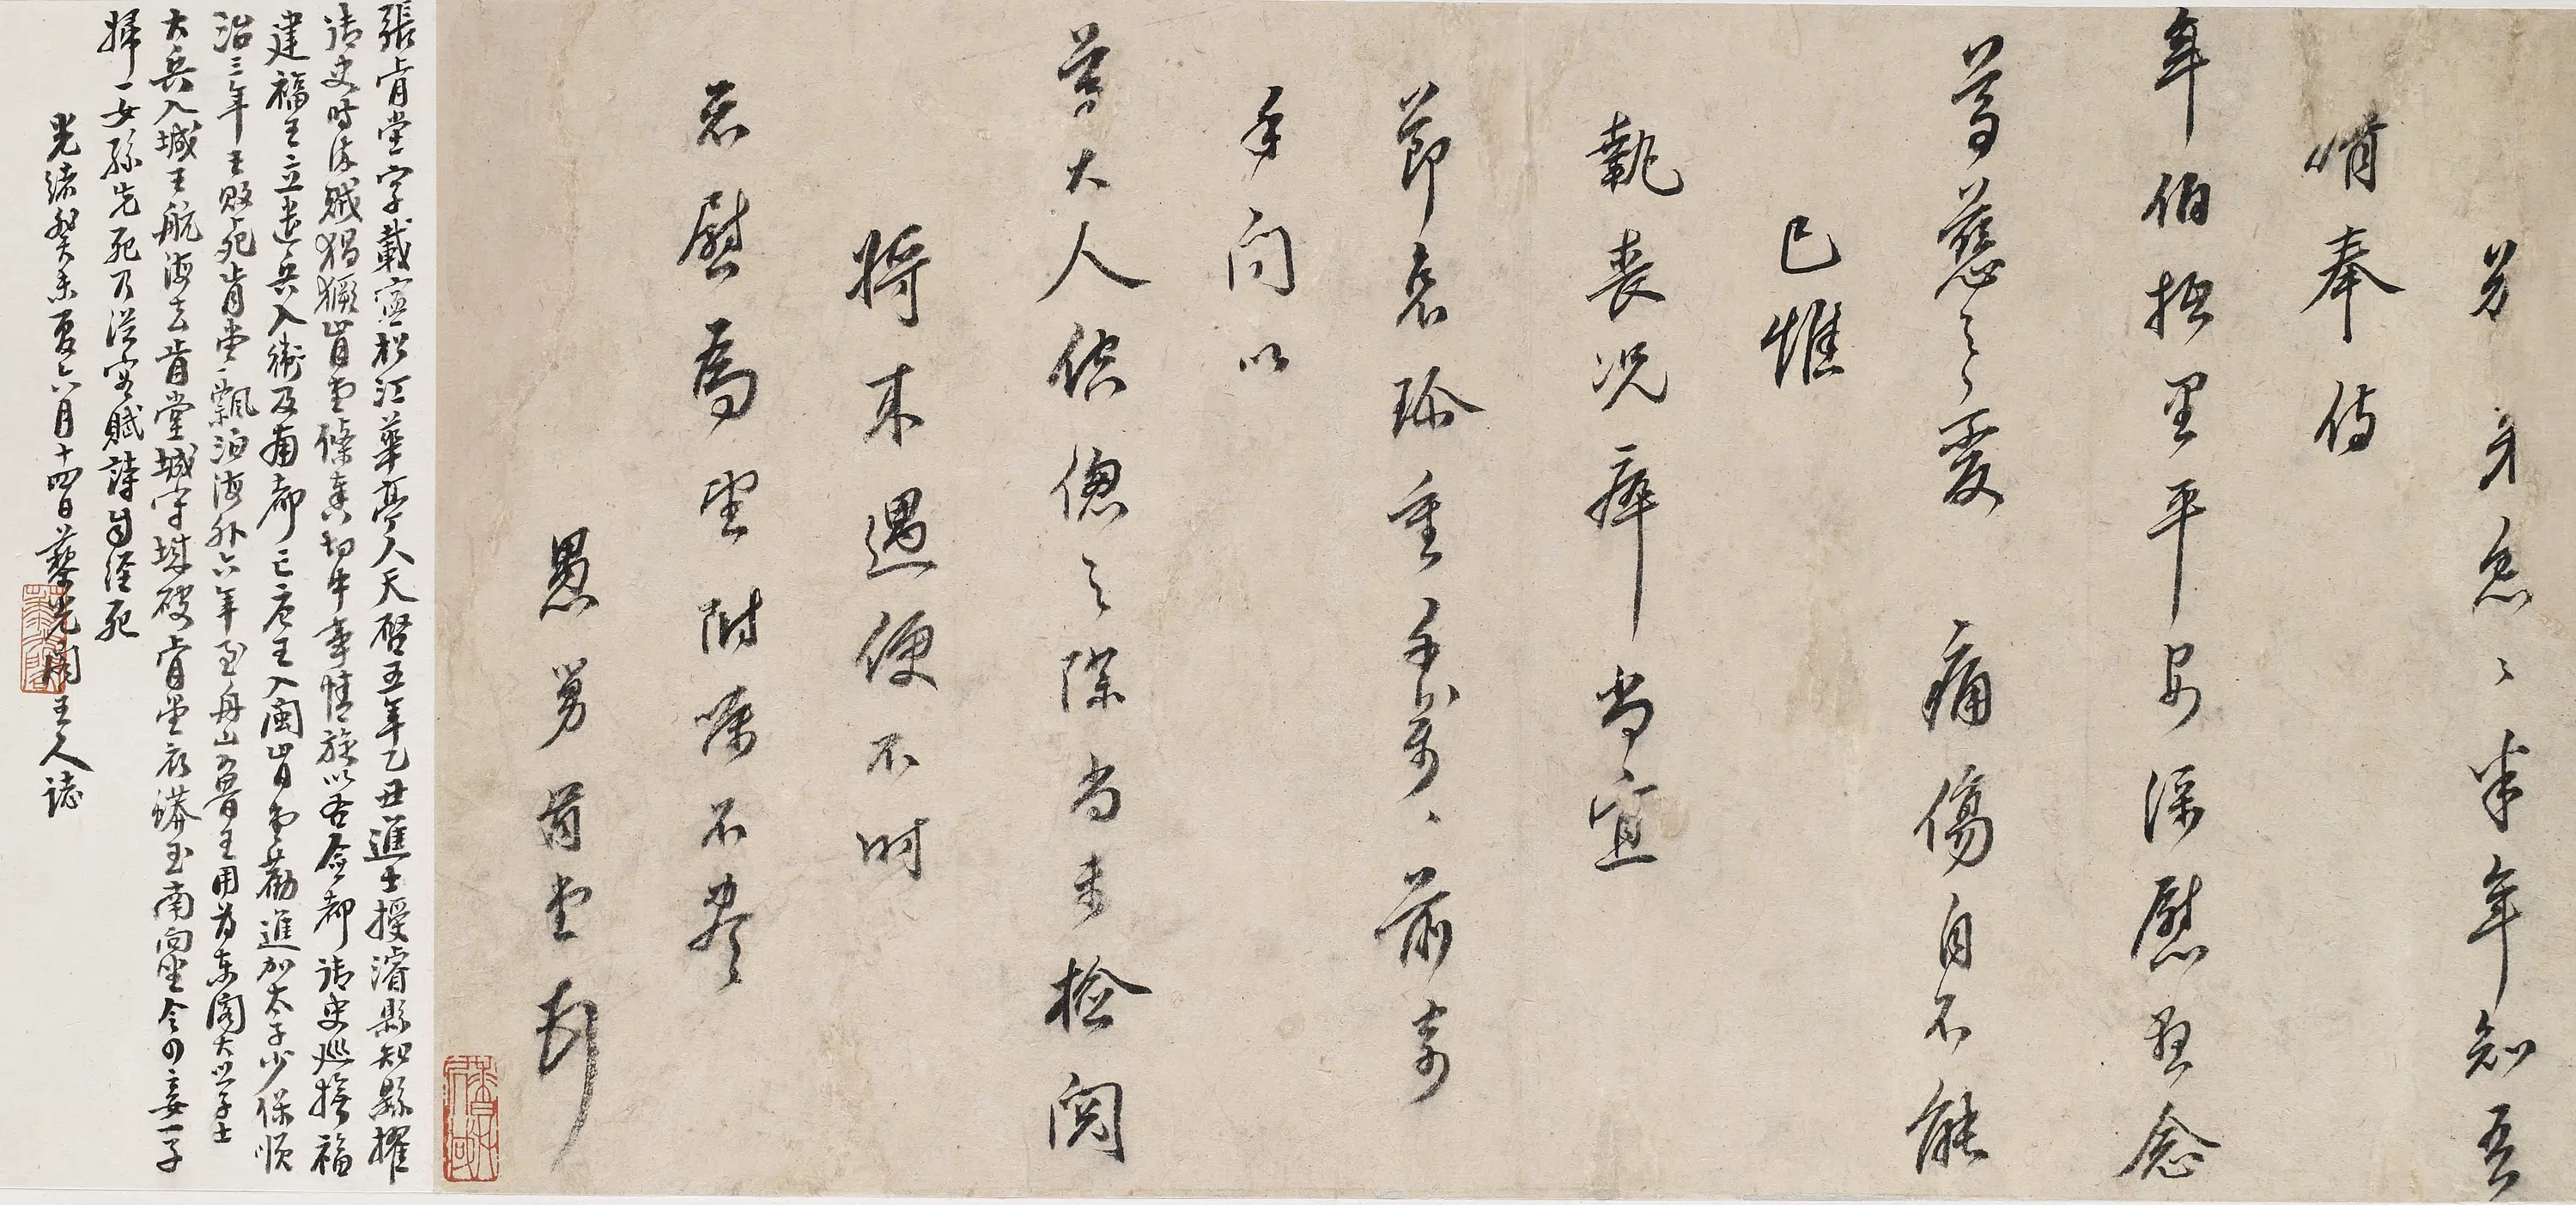 别来忽忽半年知吾
甥奉侍
年伯抵里平安深慰然念
尊慈之变 痛傷自不能
已惟
執喪況瘁尚宜
節哀珍重千萬萬前寄
手问以
尊大人倥偬之際尚未检阅
将来遇便不时
示慰為望附啓不盡
愚舅肯堂
張肯堂字載寧松江華亭人天啓五年乙丑進士授濬縣知縣擢
御史时流賊猖獗肯堂條奏切中事情旋以右僉都御史巡撫福
建福王立遣兵入衛及南都亡唐王入閩肯堂勸進加太子少保順
治三年王敗死肯堂飄泊海外六年至舟山魯王用為東閣大學士
大兵入城王航海去肯堂城守城破肯堂衣蟒玉南向坐令四妾一子
婦一女孫先死乃從容賦詩自經死
光緒癸未夏六月十四日藜光閣主人誌